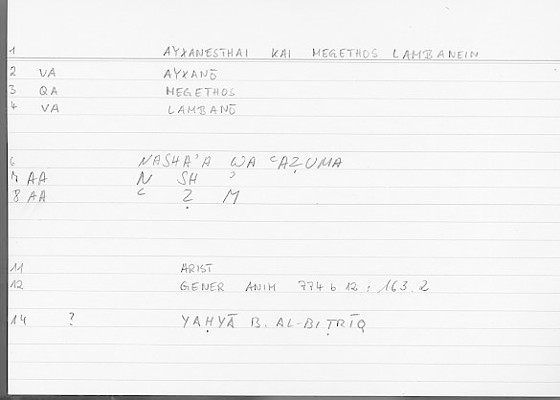 1 AYXANESTHAI KAI MEGETHOS LAMBANEIN
2 VA AYXANŌ
3 QA MEGETHOS
4 VA LAMBANŌ
6 NASHAʾA WA ʿAẒUMA
7 AA N SH ʾ
8 AA ʿ Ẓ M
11 ARIST
12 GENER ANIM 774 b 12 : 163.2
14 ? YAḤYĀ B. AL-BIṬRĪQ